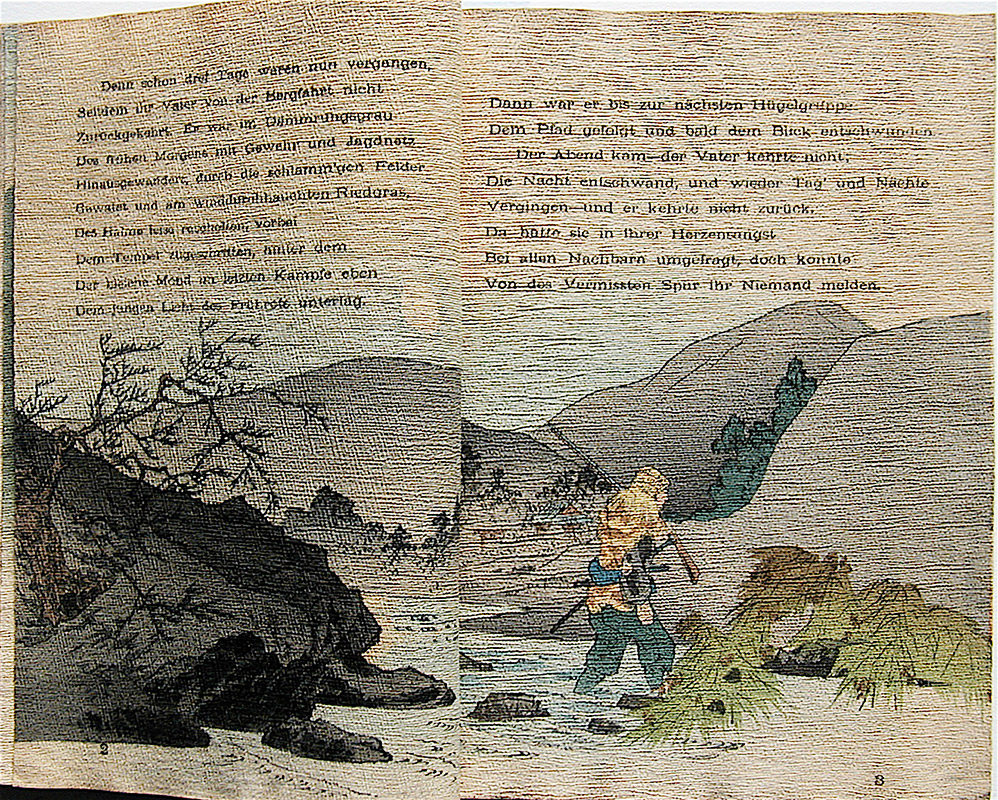 Denn schon drei Tage waren nun vergangen,
Seitdem ihr Vater von der Bergfahrt nicht
Zurückgekehrt. Er war im Dämmrungsgrau
Des frühen Morgens mit Gewehr und Jagdnetz
Hinausgewandert, durch die schlamm'gen Felder
Gewatet und am winddurchhauchten Riedgras,
Des Halme leise raschelten, vorbei
Dem Tempel zugeschritten, hinter dem
Der bleiche Mond im letzten Kampfe eben
Dem jungen Licht des Frührots unterlag.
2
Dann war er bis zur nächsten Hügelgruppe
Dem Pfad gefolgt und bald dem Blick entschwunden.
Der Abend kam—der Vater kehrte nicht;
Die Nacht entschwand, und wieder Tag' und Nächte
Vergingen—und er kehrte nicht zurück.
Da hatte sie in ihrer Herzensangst
Bei allen Nachbarn umgefragt, doch konnte
Von des Vermissten Spur ihr Niemand melden.
3